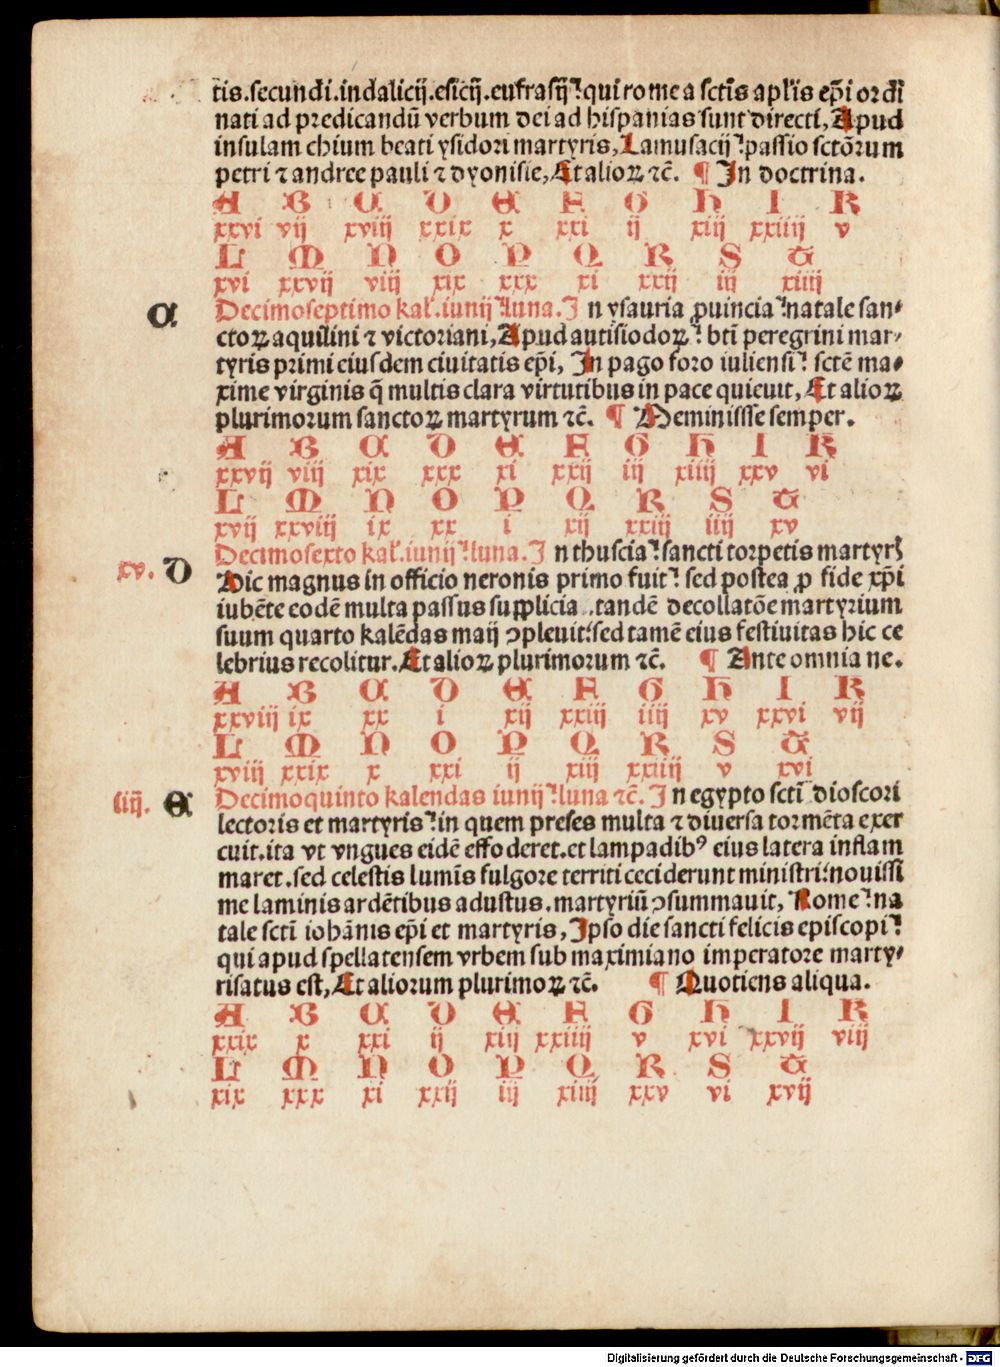 tis.secundi.indalicij.esicij.eufrasij⁊ qui rome a sctis aplis epi ordi
nati ad predicandū verbum dei ad hispanias sunt directi, Apud
insulam chium beati ysidori martyris, Lamusacij: passio sctōrum
petri ⁊ andree pauli ⁊ dyonisie, Et alioꝝ ⁊c̄. ¶ In doctrina.
A B C D E F G H I K
xxvi vij xviij xxix x xxi ij xiij xxiiij v
L M N O P Q R S T
xvi xxvij viij xix xxx xi xxij iij xiiij
C Decimoseptimo kal̄. iunij: luna. In ysauria ꝓuincia: natale san-
ctoꝝ aquilini ⁊ victoriani, Apud autisiodoꝝ: bti peregrini mar-
tyris primi eiusdem ciuitatis epi, In pago foro iuliensi: sctē ma-
xime virginis q̄ multis clara virtutibus in pace quieuit, Et alioꝝ
plurimorum sanctoꝝ martyrum ⁊c̄. ¶ Meminisse semper.
A B C D E F G H I K
xxvij viij xix xxx xi xxij iij xiiij xxv vi
L M N O P Q R S T
xvij xxviij ix xx i xij xxiij iiij xv
Decimosexto kal̄. iunij: luna. In thuscia: sancti torpetis martyris
xv. D Hic magnus in officio neronis primo fuit: sed postea ꝓ fide xp̄i
iubēte eodē multa passus supplicia. tandē decollatōe martyrium
suum quarto kalēdas maij ↄpleuit: sed tamē eius festiuitas hic ce
lebrius recolitur. Et alioꝝ plurimorum ⁊c̄. ¶ Ante omnia ne.
A B C D E F G H I K
xxviij ix xx i xij xxiij iiij xv xxvi vij
L M N O P Q R S T
xviij xxix x xxi ij xiij xxiiij v xvi
iiij. E Decimoquinto kalendas iunij: luna ⁊c̄. In egypto scti dioscori
lectoris et martyris: in quem preses multa ⁊ diuersa tormēta exer
cuit. ita vt vngues eidē effoderet. et lampadibꝰ eius latera inflam
maret. sed celestis lumis fulgore territi ceciderunt ministri: nouissi
me laminis ardētibus adustus. martyriū ↄsummauit, Rome: na
tale scti iohānis epi et martyris, Ipso die sancti felicis episcopi:
qui apud spellatensem vrbem sub maximiano imperatore marty-
risatus est, Et aliorum plurimoꝝ ⁊c̄. ¶ Quotiens aliqua.
A B C D E F G H I K
xxix x xxi ij xiij xxiiij v xvi xxvij viij
L M N O P Q R S T
xix xxx xi xxij iij xiiij xxv vi xvij
Digitalisierung gefördert durch die Deutsche Forschungsgemeinschaft - DFG